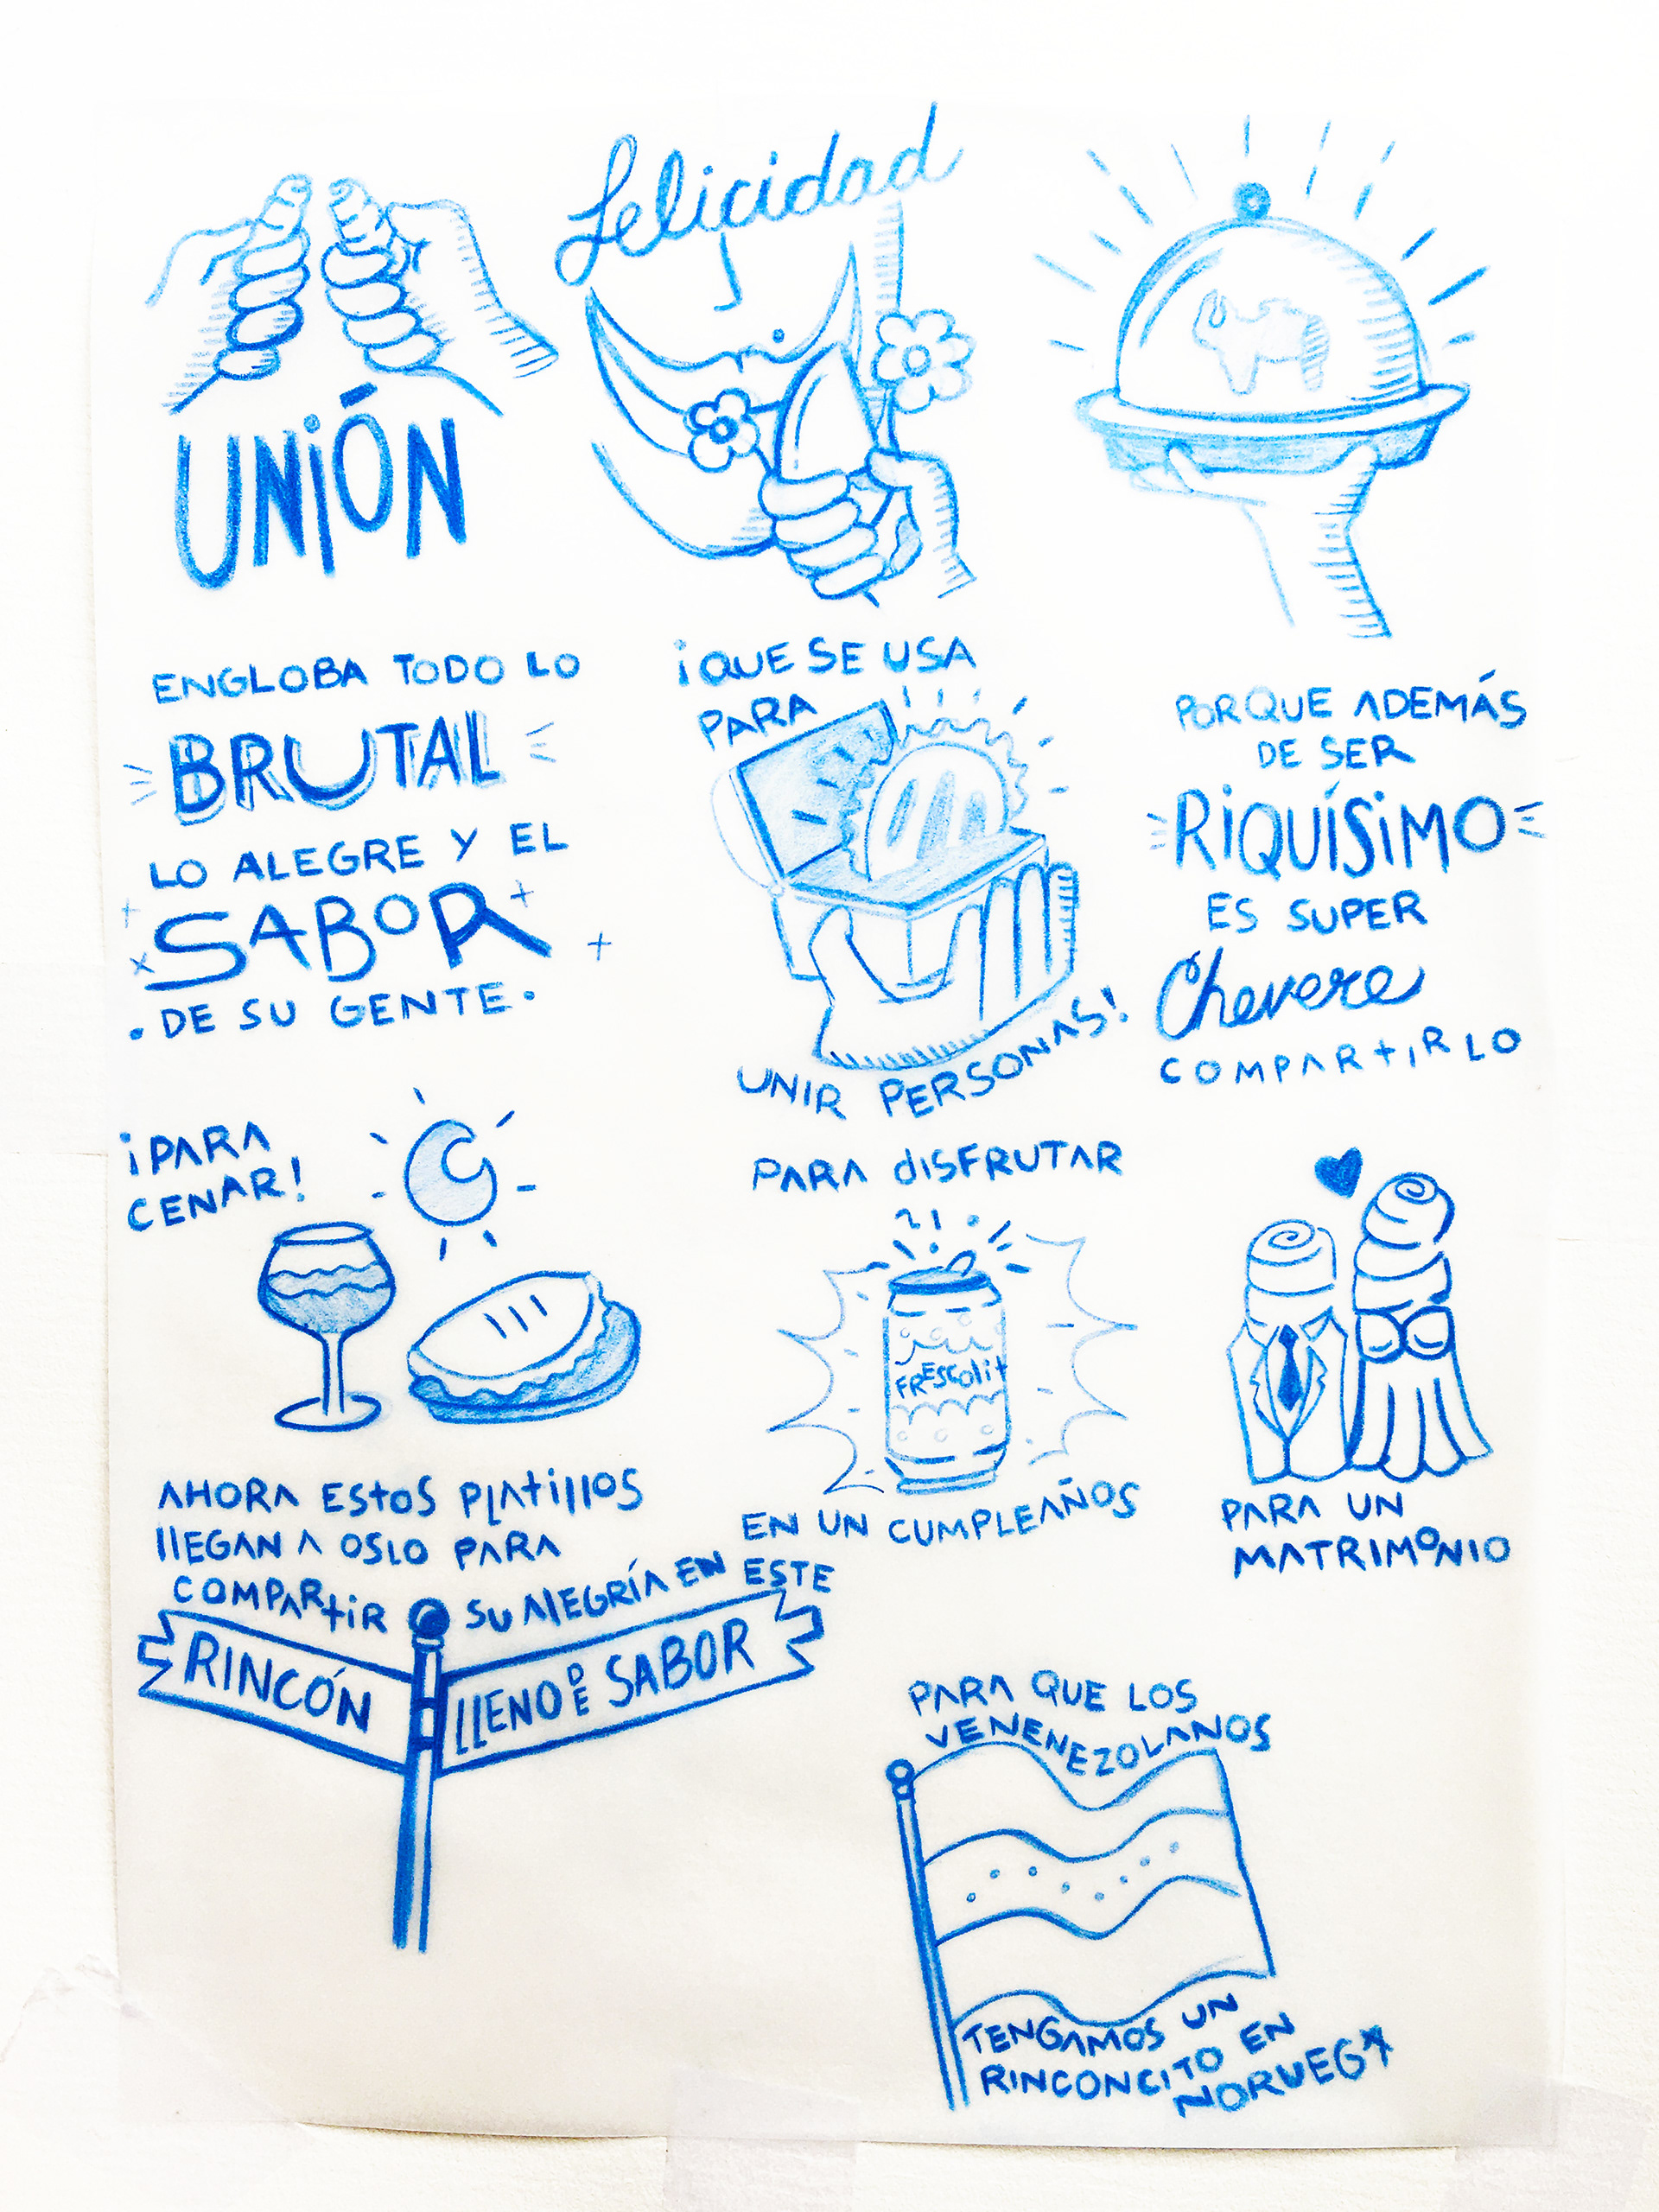 UNIÓN
Felicidad
ENGLOBA TODO LO
BRUTAL
LO ALEGRE Y EL
SABOR
. DE SU GENTE.
¡QUE SE USA
PARA
UNIR PERSONAS!
PORQUE ADEMÁS
DE SER
RIQUÍSIMO
ES SUPER
Chevere
COMPARTIRLO
¡PARA
CENAR!
PARA disFRUTAR
FRESCOlit
EN UN CUMPLEAÑOS
PARA UN
MATRIMONIO
AHORA EStOS PLAtillOS
llEGAN A OSLO PARA
COMPARtiR SU AlEGRÍA EN ESTE
RINCÓN
LLENO DE SABOR
PARA QUE LOS
VENENEZOLANOS
TENGAMOS UN
RINCONCITO EN
NORUEGA